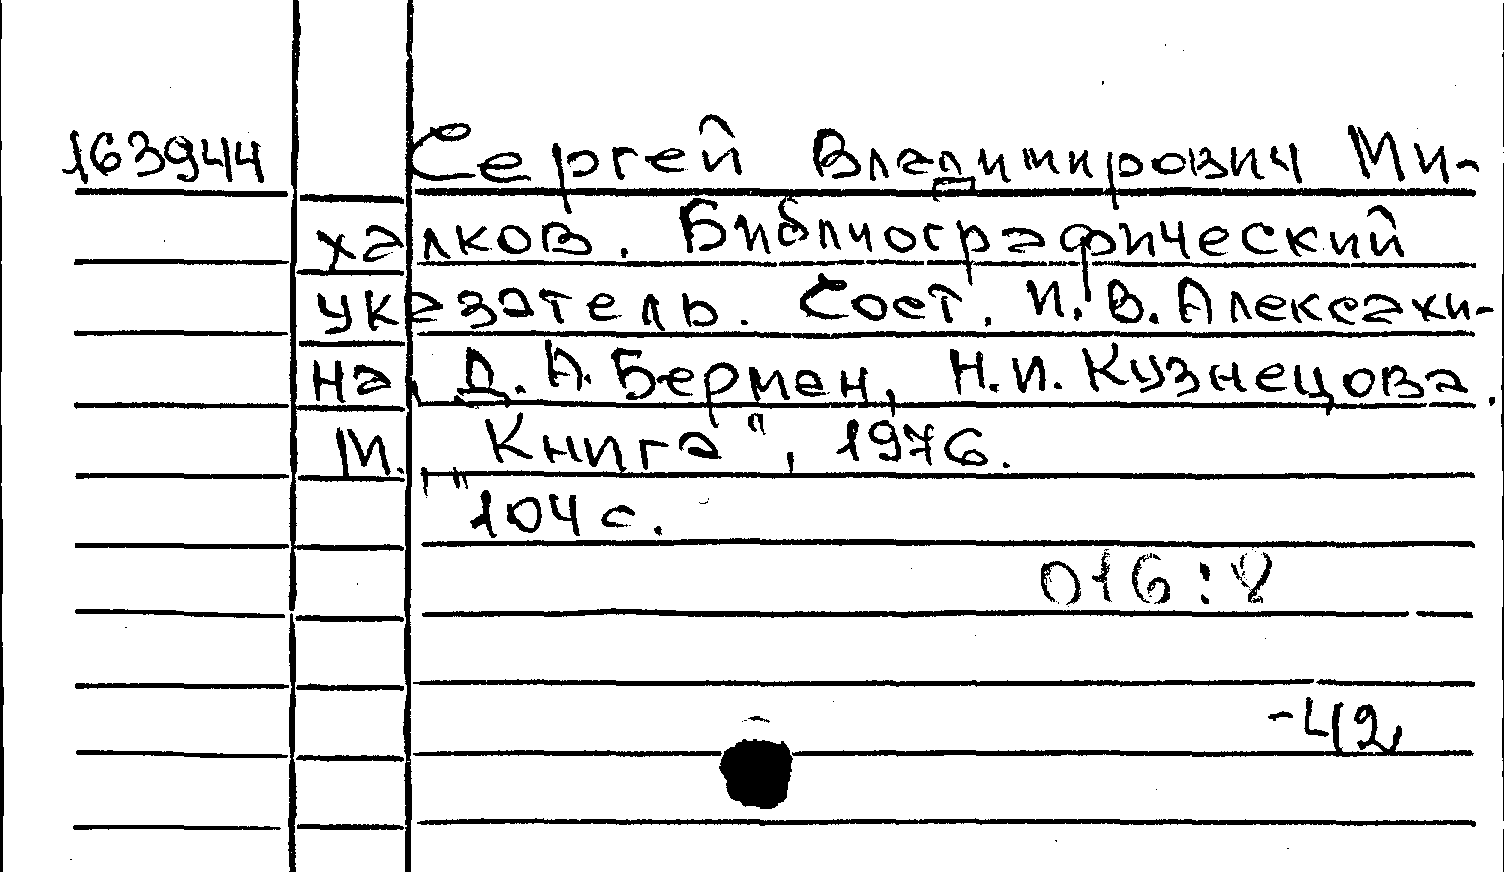 163944 Сергей Владимирович Ми-
халков. Библиографический
указатель. Сост. И. В. Алексахи-
на, Д. А. Берман, Н. И. Кузнецова.
М., "Книга", 1976.
104 с.
016:8
-42